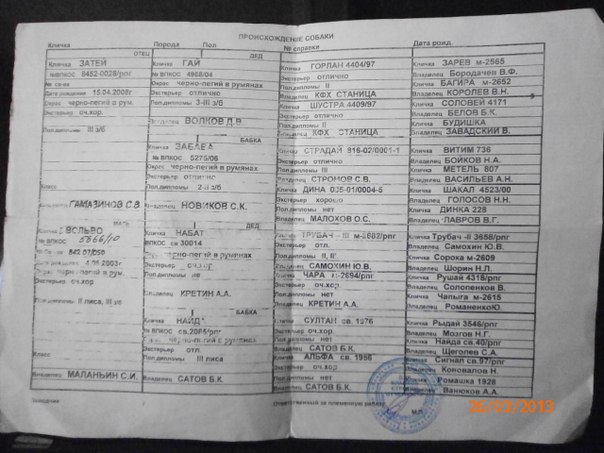 ПРОИСХОЖДЕНИЕ СОБАКИ
Кличка Порода Пол № справки Дата рожд.
ОТЕЦ
Кличка ЗАТЕЙ
№ ВПКОС 8452-0028/рпг
№ св-ва
Дата рождения 15.04.2008г
Окрас черно-пегий в румянах
оч.хор.
Пол.дипломы III з/б
Класс
ГАМАЗИНОВ С.В.
МАТЬ
Кличка ВОЛЬВО
№ ВПКОС 5866/10
842 07/050
2003г
черно-пегий в рум.
оч.хор.
II лиса, III з/б
Класс
Владелец МАЛАНЬИН С.И.
ДЕД
Кличка ГАЙ
№ ВПКОС 4968/04
Окрас черно-пегий в румянах
Экстерьер отлично
Пол.дипломы 3-III з/б
Владелец ВОЛКОВ Д.В.
БАБКА
Кличка ЗАБАВА
№ ВПКОС 5275/06
Окрас черно-пегий в румянах
Экстерьер отлично
Пол.дипломы 2-II з/б
Владелец НОВИКОВ С.К.
ДЕД
Кличка НАБАТ
ВПКОС св 30014
черно-пегий в румянах
Экстерьер оч.хор.
Пол.дипломы III з/б
Владелец КРЕТИН А.А.
БАБКА
Кличка НАЙДА
№ ВПКОС св.2085/рпг
черно-пегий в румянах
Экстерьер отл.
Пол.дипломы III лиса
Владелец САТОВ Б.К.
Кличка ГОРЛАН 4404/97
Экстерьер отлично
Пол.дипломы II
Владелец КФХ СТАНИЦА
Кличка ШУСТРА 4409/97
Экстерьер отлично
Пол.дипломы II
Владелец КФХ СТАНИЦА
Кличка СТРАДАЙ 916-02/0001-1
Экстерьер отлично
Пол.дипломы
Владелец СТРОМОВ С.В.
Кличка ДИНА 035-01/0004-5
Экстерьер хорошо
Пол.дипломы нет
Владелец МАЛОХОВ О.С.
Кличка ТРУБАЧ - III м-2682/рпг
Экстерьер отл.
Пол.дипломы нет
Владелец САМОХИН Ю.В.
Кличка ЧАРА м-2694/рпг
Экстерьер оч.хор.
Пол.дипломы нет
Владелец КРЕТИН А.А.
Кличка СУЛТАН св.1976
Экстерьер оч.хор.
Пол.дипломы нет
Владелец САТОВ Б.К.
Кличка АЛЬФА св. 1956
Экстерьер оч.хор.
Пол.дипломы нет
Владелец САТОВ Б.К.
Кличка ЗАРЕВ м-2565
Владелец Бородачев В.Ф.
Кличка БАГИРА м-2652
Владелец КОРОЛЕВ В.Н.
Кличка СОЛОВЕЙ 4171
Владелец БЕЛОВ Б.К.
Кличка БУДИШКА
Владелец ЗАВАДСКИЙ В.
Кличка ВИТИМ 736
Владелец БОЙКОВ Н.А.
Кличка МЕТЕЛЬ 807
Владелец ВАСИЛЬЕВ А.Н.
Кличка ШАКАЛ 4523/00
Владелец ГОЛОСОВ Н.Н.
Кличка ДИНКА 228
Владелец ЛАВРОВ В.Г.
Кличка Трубач -II 3658/рпг
Владелец Самохин Ю.В.
Кличка Сорока м-2609
Владелец Шорин Н.Л.
Кличка Рушай 4318/рпг
Владелец Солопенков В.
Кличка Чапыга м-2615
Владелец РоманенкоЮ.
Кличка Рыдай 3546/рпг
Владелец Мозгов Н.Г.
Кличка Найда св.40/рпг
Владелец Щеголев С.А.
Кличка Сигнал св.97/рпг
Владелец Коновалов Н.
Кличка Ромашка 1928
Владелец Ванюков А.А.
Заводчик
Ответственный за племенную работу
М.П.
26/02/2013